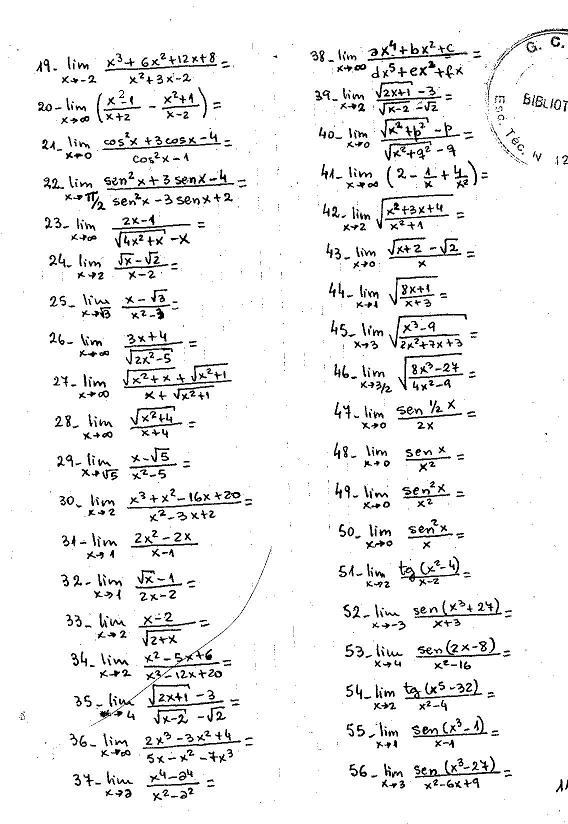 19- lim x→-2 (x³ + 6x² + 12x + 8)/(x² + 3x - 2) =
20- lim x→∞ ((x² - 1)/(x + 2) - (x² + 1)/(x - 2)) =
21- lim x→0 (cos²x + 3cosx - 4)/(cos²x - 1) =
22- lim x→π/2 (sen²x + 3senx - 4)/(sen²x - 3senx + 2) =
23- lim x→∞ (2x - 1)/(√(4x² + x) - x) =
24- lim x→2 (√x - √2)/(x - 2) =
25- lim x→√3 (x - √3)/(x² - 3) =
26- lim x→∞ (3x + 4)/√(2x² - 5) =
27- lim x→∞ (√(x² + x) + √(x² + 1))/(x + √(x² + 1))
28- lim x→∞ √(x² + 4)/(x + 4) =
29- lim x→√5 (x - √5)/(x² - 5) =
30- lim x→2 (x³ + x² - 16x + 20)/(x² - 3x + 2) =
31- lim x→1 (2x² - 2x)/(x - 1)
32- lim x→1 (√x - 1)/(2x - 2) =
33- lim x→2 (x - 2)/√(2 + x) =
34- lim x→2 (x² - 5x + 6)/(x³ - 12x + 20) =
35- lim x→4 (√(2x + 1) - 3)/(√(x - 2) - √2) =
36- lim x→∞ (2x³ - 3x² + 4)/(5x - x² - 7x³) =
37- lim x→a (x⁴ - a⁴)/(x² - a²) =
38- lim x→∞ (ax⁴ + bx² + c)/(dx⁵ + ex³ + fx) =
39- lim x→2 (√(2x + 1) - 3)/(√(x - 2) - √2) =
40- lim x→0 (√(x² + p²) - p)/(√(x² + q²) - q)
41- lim x→∞ (2 - 1/x + 4/x²) =
42- lim x→2 √((x² + 3x + 4)/(x² + 1)) =
43- lim x→0 (√(x + 2) - √2)/x =
44- lim x→1 √((8x + 1)/(x + 3)) =
45- lim x→3 √((x³ - 9)/(2x² + 7x + 3)) =
46- lim x→3/2 √((8x³ - 27)/(4x² - 9)) =
47- lim x→0 (sen 1/2 x)/(2x) =
48- lim x→0 (sen x)/x² =
49- lim x→0 (sen²x)/x² =
50- lim x→0 (sen²x)/x =
51- lim x→2 (tg (x² - 4))/(x - 2) =
52- lim x→-3 (sen (x³ + 27))/(x + 3) =
53- lim x→4 (sen (2x - 8))/(x² - 16) =
54- lim x→2 (tg (x⁵ - 32))/(x² - 4) =
55- lim x→1 (sen (x³ - 1))/(x - 1) =
56- lim x→3 (sen (x³ - 27))/(x² - 6x + 9) =
G. C.
BIBLIOT
Esc. Téc. N 12